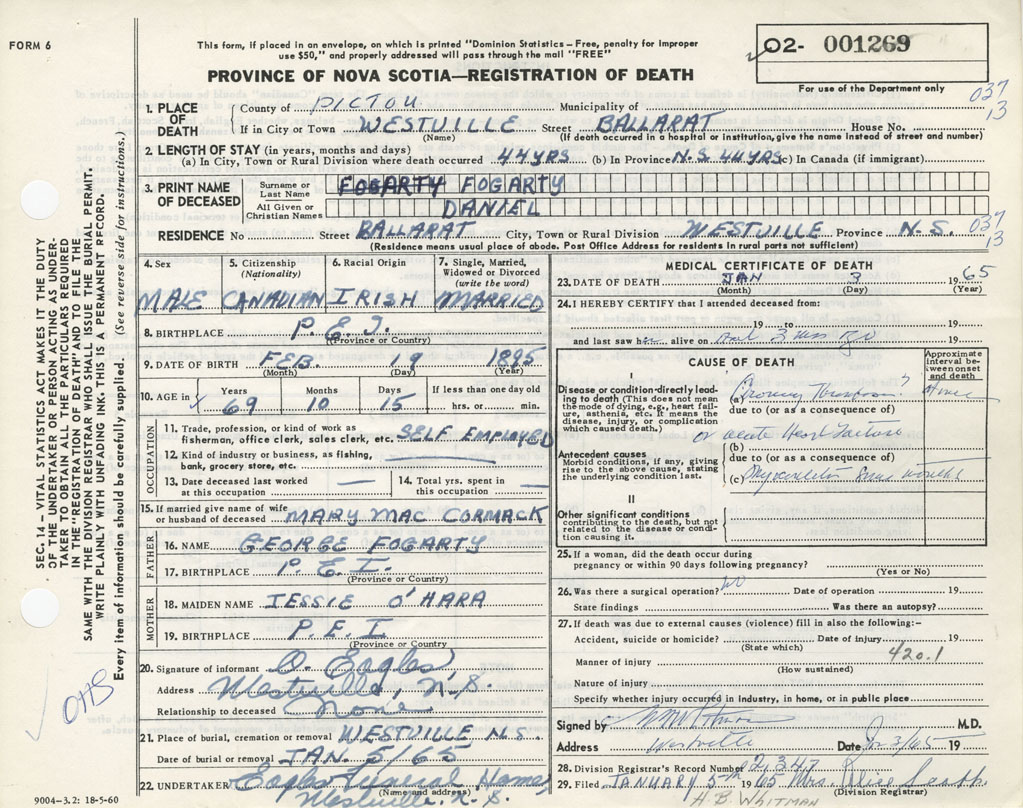 FORM 6
This form, if placed in an envelope, on which is printed "Dominion Statistics – Free, penalty for improper
use $50," and properly addressed will pass through the mail "FREE"
O2- 001269
PROVINCE OF NOVA SCOTIA—REGISTRATION OF DEATH
For use of the Department only
037
13
1. PLACE OF DEATH County of PICTOU Municipality of
If in City or Town WESTVILLE Street BALLARAT House No.
(Name) (If death occurred in a hospital or institution, give the name instead of street and number)
2. LENGTH OF STAY (in years, months and days)
(a) In City, Town or Rural Division where death occurred 44 YRS (b) In Province N.S. 44 YRS (c) In Canada (if immigrant)
3. PRINT NAME OF DECEASED Surname or Last Name FOGARTY FOGARTY
All Given or Christian Names DANIEL
RESIDENCE No Street BALLARAT City, Town or Rural Division WESTVILLE Province N.S. 037
13
(Residence means usual place of abode. Post Office Address for residents in rural parts not sufficient)
4. Sex 5. Citizenship (Nationality) 6. Racial Origin 7. Single, Married, Widowed or Divorced (write the word)
MALE CANADIAN IRISH MARRIED
8. BIRTHPLACE P.E.I.
(Province or Country)
9. DATE OF BIRTH FEB. 19 1895
(Month) (Day) (Year)
10. AGE in Years Months Days If less than one day old
69 10 15 hrs. or min.
OCCUPATION
11. Trade, profession, or kind of work as
fisherman, office clerk, sales clerk, etc. SELF EMPLOYED
12. Kind of industry or business, as fishing,
bank, grocery store, etc.
13. Date deceased last worked at this occupation
14. Total yrs. spent in this occupation
15. If married give name of wife
or husband of deceased MARY MAC CORMACK
FATHER
16. NAME GEORGE FOGARTY
17. BIRTHPLACE P.E.I.
(Province or Country)
MOTHER
18. MAIDEN NAME JESSIE O'HARA
19. BIRTHPLACE P.E.I
(Province or Country)
20. Signature of informant O. Eagles,
Address Westville, N.S.
Relationship to deceased None
21. Place of burial, cremation or removal WESTVILLE N.S.
Date of burial or removal JAN. 5/65
22. UNDERTAKER Eagles Funeral Home
(Name and address)
Westville, N.S.
MEDICAL CERTIFICATE OF DEATH
23. DATE OF DEATH JAN 3 1965
(Month) (Day) (Year)
24. I HEREBY CERTIFY that I attended deceased from:
19 to 19
and last saw h alive on 19
CAUSE OF DEATH
Approximate interval between onset and death
I
Disease or condition directly leading to death (This does not mean
the mode of dying, e.g., heart failure, asthenia, etc. It means the
disease, injury, or complication
which caused death.)
(a) Coronary Thrombosis?
due to (or as a consequence of)
or acute Heart Failure
(b)
Antecedent causes
Morbid conditions, if any, giving
rise to the above cause, stating
the underlying condition last.
due to (or as a consequence of)
(c) months
II
Other significant conditions
contributing to the death, but not
related to the disease or condition causing it.
25. If a woman, did the death occur during
pregnancy or within 90 days following pregnancy?
(Yes or No)
26. Was there a surgical operation? No Date of operation 19
State findings Was there an autopsy?
27. If death was due to external causes (violence) fill in also the following:-
Accident, suicide or homicide? Date of injury 19
(State which)
420.1
Manner of injury
(How sustained)
Nature of injury
Specify whether injury occured in industry, in home, or in public place
Signed by M.D.
Address Westville Date 3/65 19
28. Division Registrar's Record Number 2,347
29. Filed JANUARY 5th 1965 Mrs. Alice
(Division Registrar)
H.B. WHITMAN
SEC. 14 – VITAL STATISTICS ACT MAKES IT THE DUTY
OF THE UNDERTAKER OR PERSON ACTING AS UNDER-
TAKER TO OBTAIN ALL THE PARTICULARS REQUIRED
IN THE "REGISTRATION OF DEATH" AND TO FILE THE
SAME WITH THE DIVISION REGISTRAR WHO SHALL ISSUE THE BURIAL PERMIT.
WRITE PLAINLY WITH UNFADING INK. THIS IS A PERMANENT RECORD.
Every item of information should be carefully supplied. (See reverse side for instructions.)
OHS
9004-3.2: 18-5-60